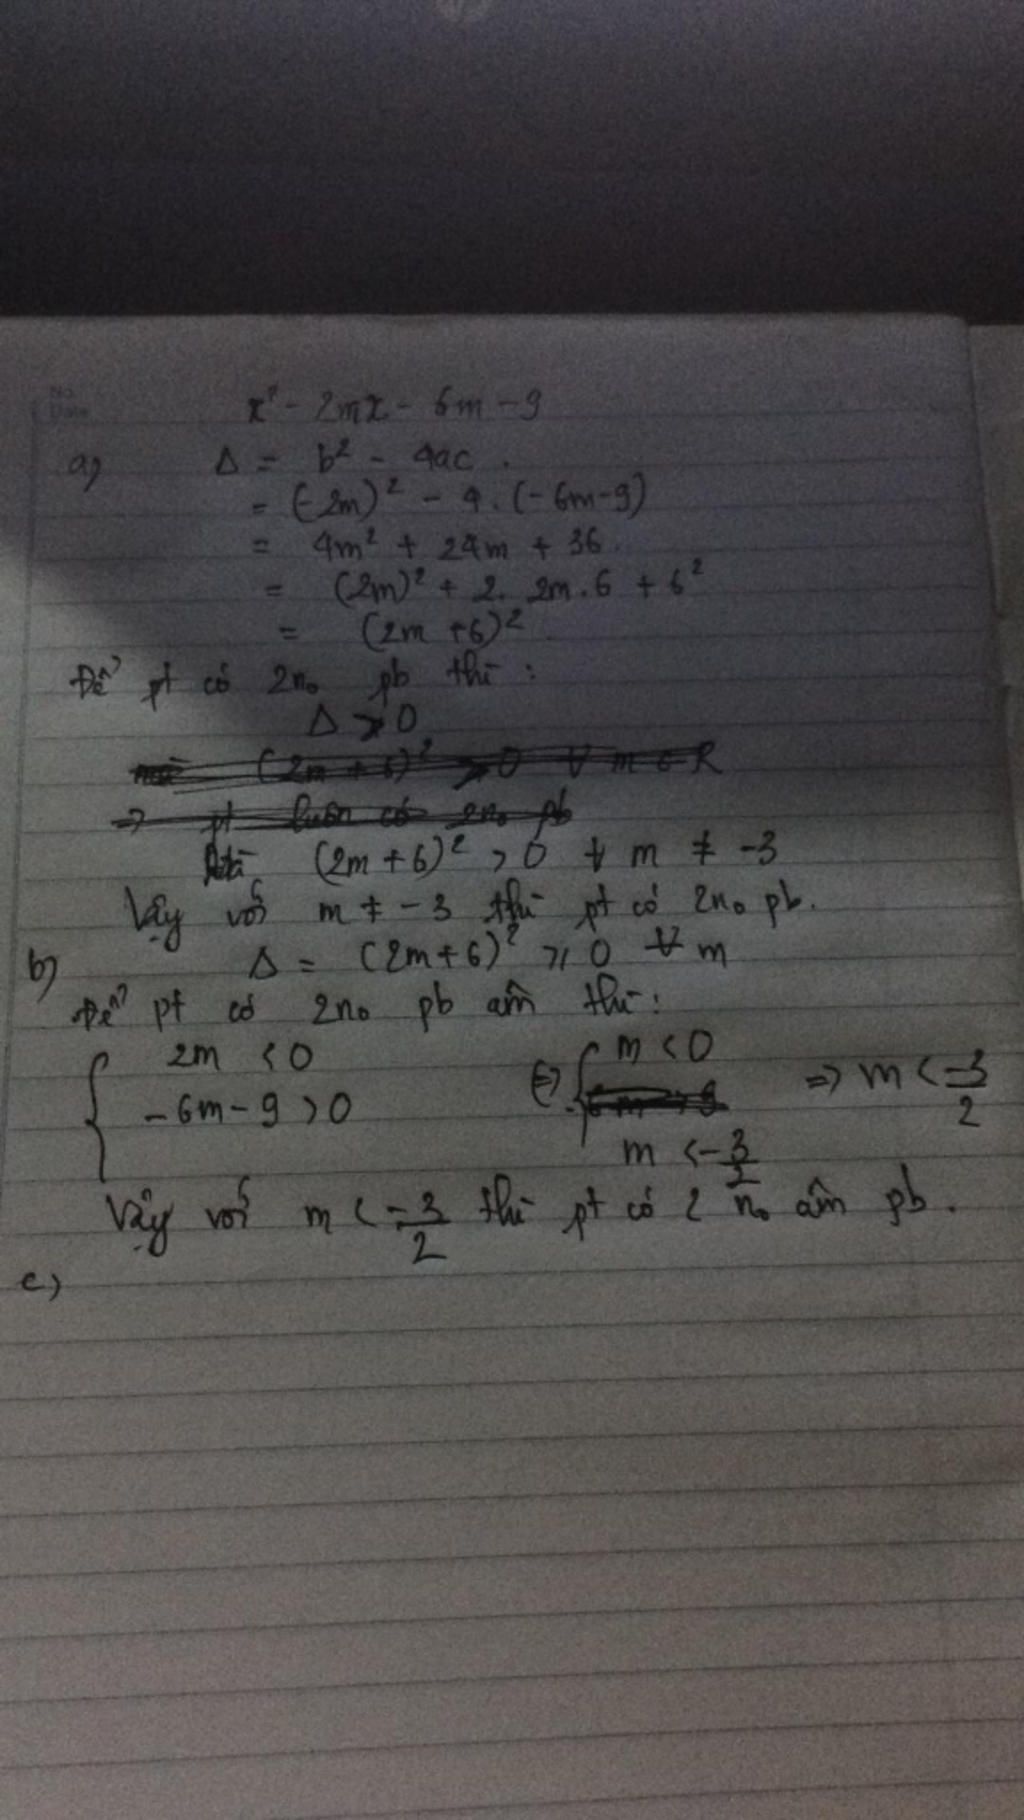 No.
Date
x² - 2mx - 6m - 9
a) Δ = b² - 4ac.
= (-2m)² - 4.(-6m-9)
= 4m² + 24m + 36.
= (2m)² + 2. 2m.6 + 6²
= (2m +6)²
Để pt có 2n₀ pb thì:
Δ > 0
(2m + 6)² > 0 ∀ m ∈ R
=> pt luôn có 2n₀ pb
(2m+6)² > 0 ∀ m ≠ -3
Vậy với m ≠ -3 thì pt có 2n₀ pb.
b) Δ = (2m+6)² ≥ 0 ∀ m
Để pt có 2n₀ pb âm thì:
2m < 0 <=> m < 0 => m < -3/2
-6m-9 > 0
m < -3/2
Vậy với m < -3/2 thì pt có 2 n₀ âm pb.
c)